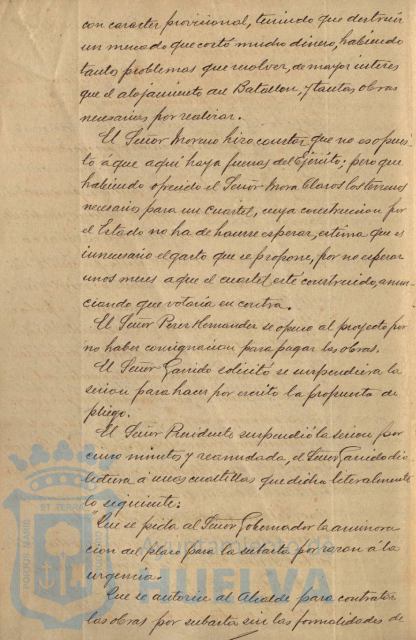 con caracter provisional, teniendo que destruir
un mercado que costó mucho dinero, habiendo
tantos problemas que resolver, de mayor interes
que el alojamiento del Batallon, y tantas obras
necesarias por realizar.
El Señor Moreno hizo constar que no es opues-
to á que aquí haya fuerzas del Ejército; pero que
habiendo ofrecido el Señor Mora Claros los terrenos
necesarios para un cuartel, cuya construccion por
el Estado no ha de hacerse esperar, estima que es
innecesario el gasto que se propone, por no esperar
unos meses a que el cuartel esté construido, anun-
ciando que votaria en contra.
El Señor Perez Hernandez se opuso al proyecto por
no haber consignacion para pagar las obras.
El Señor Garrido solicitó se suspendiera la
sesion para hacer por escrito la propuesta de
pliego.
El Señor Presidente suspendió la sesion por
cinco minutos y reanudada, el Señor Garrido dio
lectura á unas cuartillas que dicho literalmente
lo siguiente:
Que se pida al Señor Gobernador la aminora-
cion del plazo para la subasta por razon á la
urgencia.
Que se autorice al Alcalde para contratar
las obras por subasta sin las formalidades de
Ayuntamiento de
HUELVA
PORTUS MARIS ET TERRAE